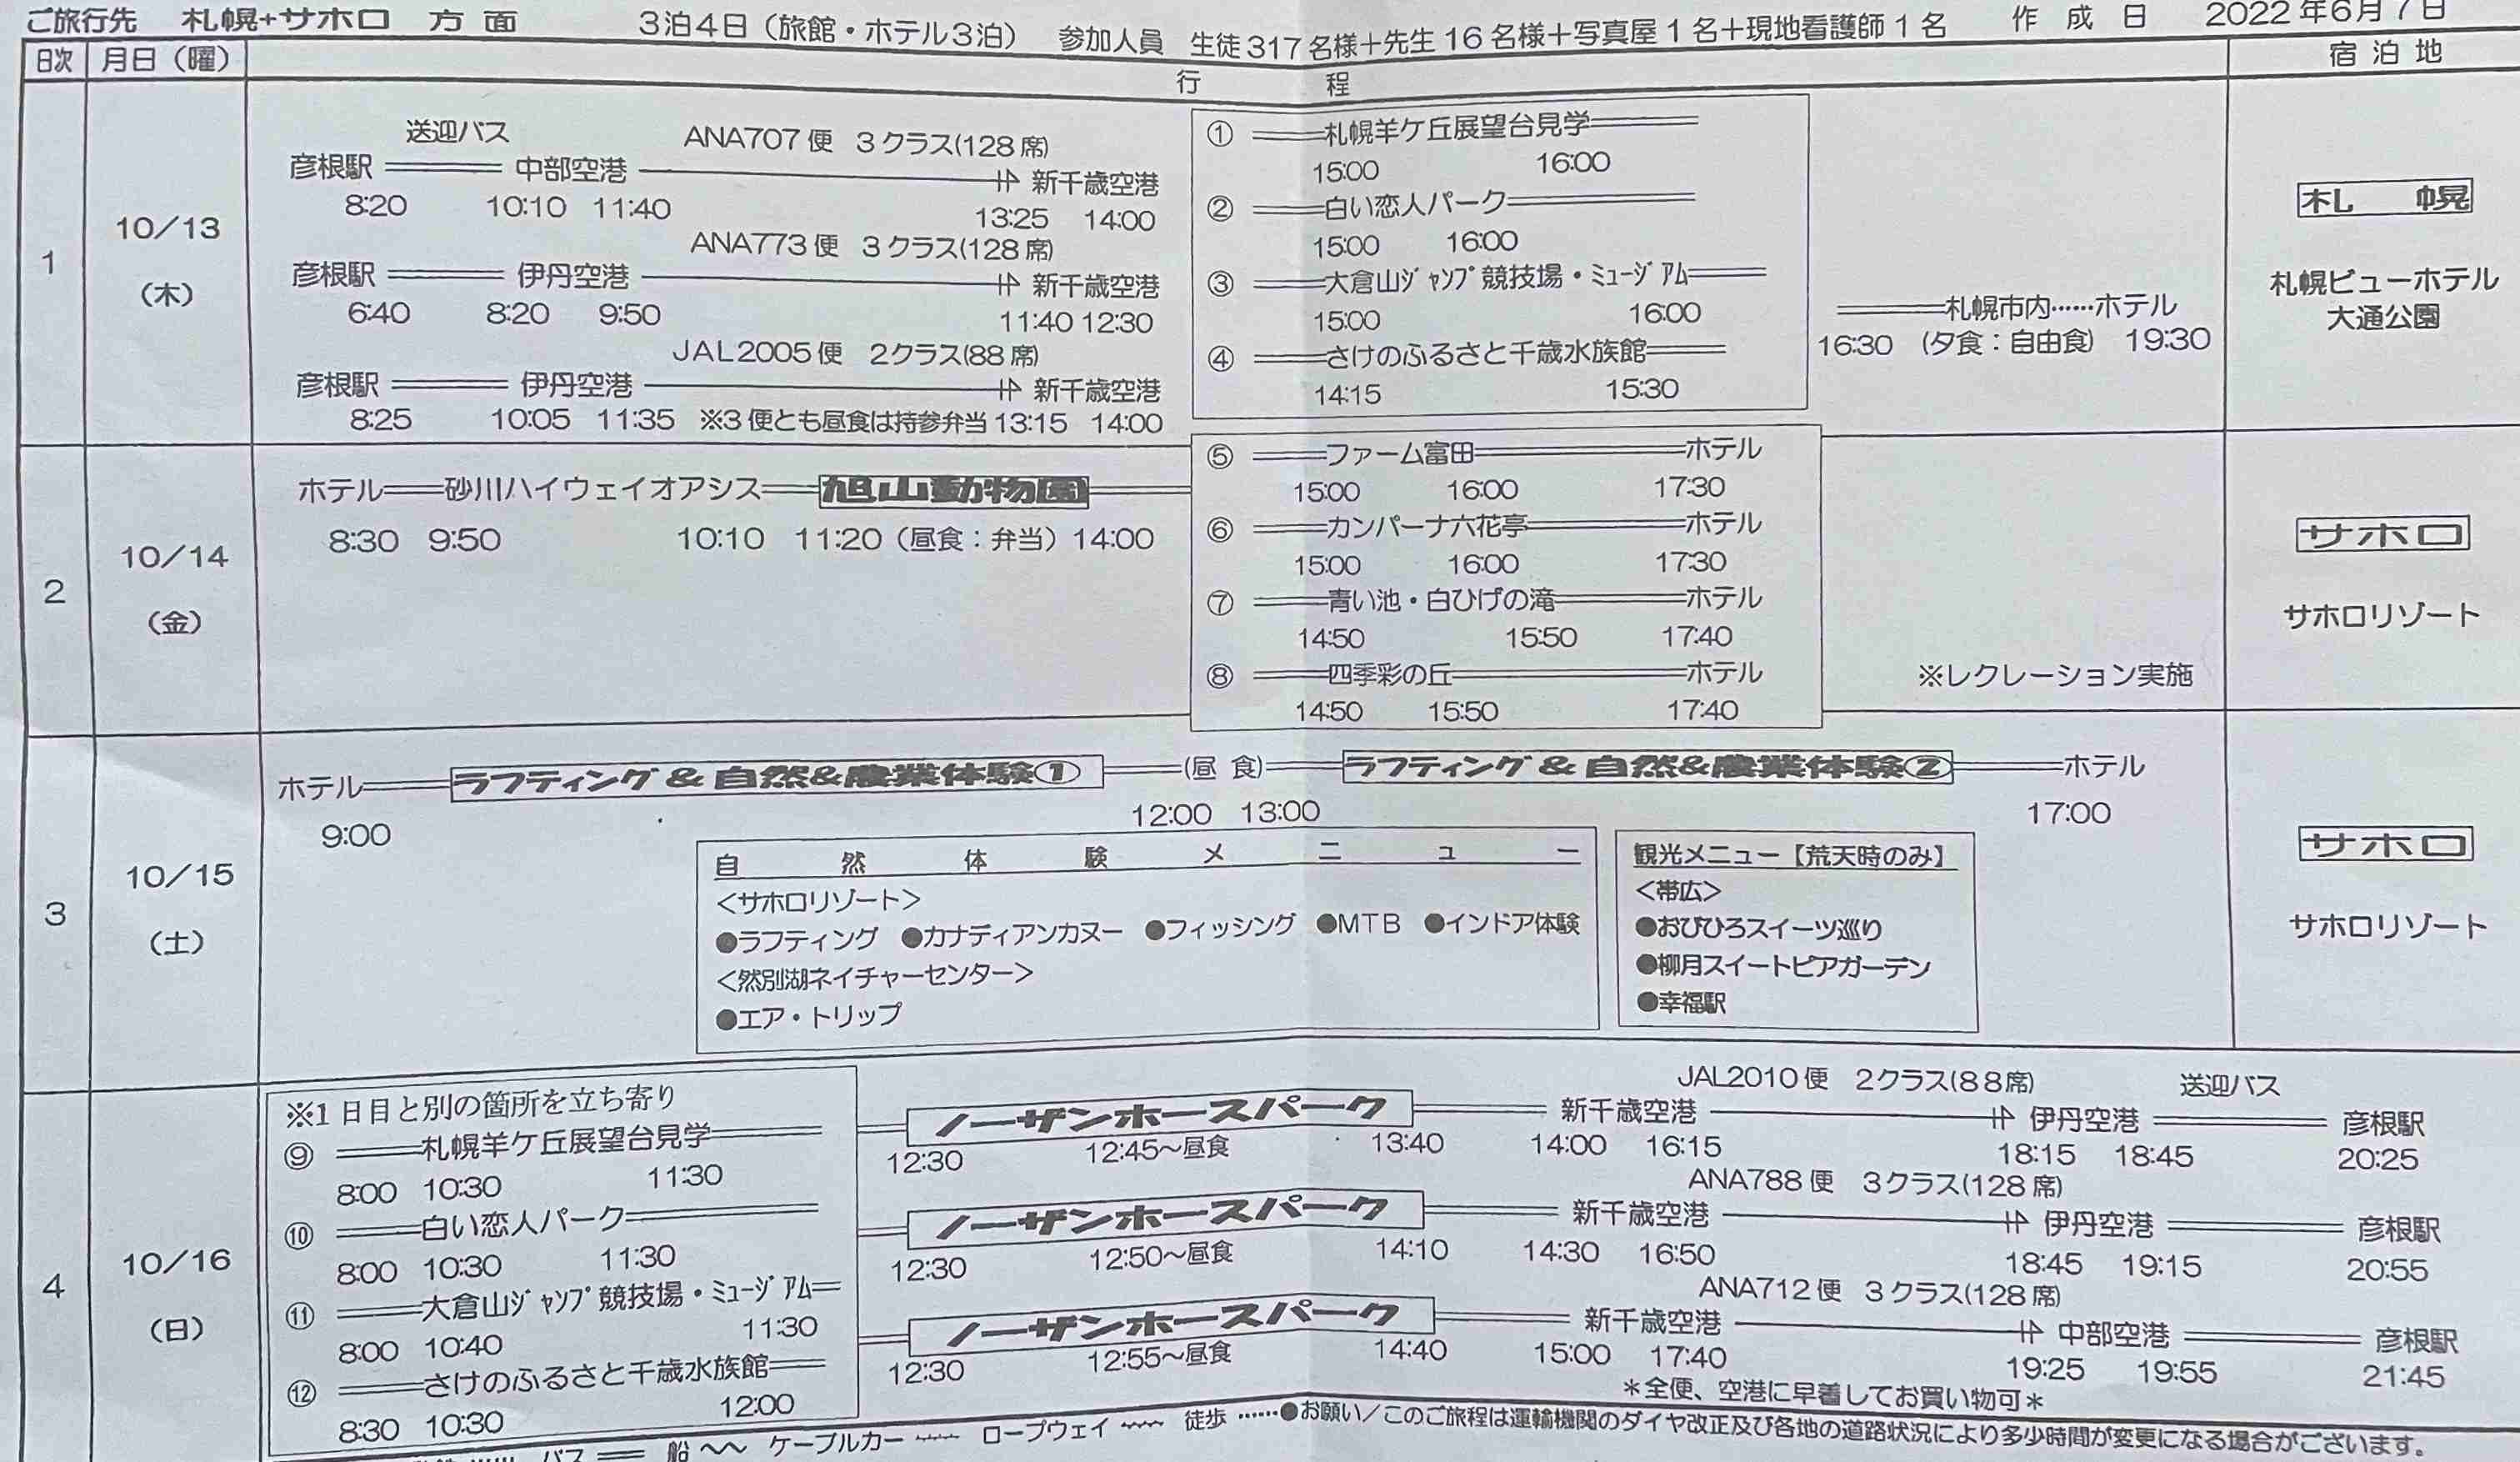 ご旅行先 札幌+サホロ 方面 3泊4日（旅館・ホテル3泊） 参加人員 生徒317名様＋先生16名様＋写真屋1名＋現地看護師1名 作成日 2022年6月7日
日次 月日（曜） 行程 宿泊地
1
10／13
（木）
送迎バス ANA707便 3クラス(128席)
彦根駅 中部空港 新千歳空港
8:20 10:10 11:40 13:25 14:00
ANA773便 3クラス(128席)
彦根駅 伊丹空港 新千歳空港
6:40 8:20 9:50 11:40 12:30
JAL2005便 2クラス(88席)
彦根駅 伊丹空港 新千歳空港
8:25 10:05 11:35 ※3便とも昼食は持参弁当 13:15 14:00
① 札幌羊ケ丘展望台見学
15:00 16:00
② 白い恋人パーク
15:00 16:00
③ 大倉山ｼﾞｬﾝﾌﾟ競技場・ﾐｭｰｼﾞｱﾑ
15:00 16:00
④ さけのふるさと千歳水族館
14:15 15:30
札幌市内……ホテル
16:30 （夕食：自由食） 19:30
札幌
札幌ビューホテル
大通公園
2
10／14
（金）
ホテル 砂川ハイウェイオアシス 旭山動物園
8:30 9:50 10:10 11:20（昼食：弁当）14:00
⑤ ファーム富田 ホテル
15:00 16:00 17:30
⑥ カンパーナ六花亭 ホテル
15:00 16:00 17:30
⑦ 青い池・白ひげの滝 ホテル
14:50 15:50 17:40
⑧ 四季彩の丘 ホテル
14:50 15:50 17:40
※レクレーション実施
サホロ
サホロリゾート
3
10／15
（土）
ホテル ラフティング＆自然&農業体験① (昼食) ラフティング＆自然&農業体験② ホテル
9:00 12:00 13:00 17:00
自然体験メニュー
＜サホロリゾート＞
●ラフティング ●カナディアンカヌー ●フィッシング ●MTB ●インドア体験
＜然別湖ネイチャーセンター＞
●エア・トリップ
観光メニュー【荒天時のみ】
＜帯広＞
●おびひろスイーツ巡り
●柳月スイートピアガーデン
●幸福駅
サホロ
サホロリゾート
4
10／16
（日）
※1日目と別の箇所を立ち寄り
⑨ 札幌羊ケ丘展望台見学
8:00 10:30 11:30
⑩ 白い恋人パーク
8:00 10:30 11:30
⑪ 大倉山ｼﾞｬﾝﾌﾟ競技場・ﾐｭｰｼﾞｱﾑ
8:00 10:40 11:30
⑫ さけのふるさと千歳水族館
8:30 10:30 12:00
JAL2010便 2クラス(88席) 送迎バス
ノーザンホースパーク 新千歳空港 伊丹空港 彦根駅
12:30 12:45～昼食 13:40 14:00 16:15 18:15 18:45 20:25
ANA788便 3クラス(128席)
ノーザンホースパーク 新千歳空港 伊丹空港 彦根駅
12:30 12:50～昼食 14:10 14:30 16:50 18:45 19:15 20:55
ANA712便 3クラス(128席)
ノーザンホースパーク 新千歳空港 中部空港 彦根駅
12:30 12:55～昼食 14:40 15:00 17:40 19:25 19:55 21:45
＊全便、空港に早着してお買い物可＊
バス 船 ケーブルカー ロープウェイ 徒歩 ……●お願い／このご旅程は運輸機関のダイヤ改正及び各地の道路状況により多少時間が変更になる場合がございます。